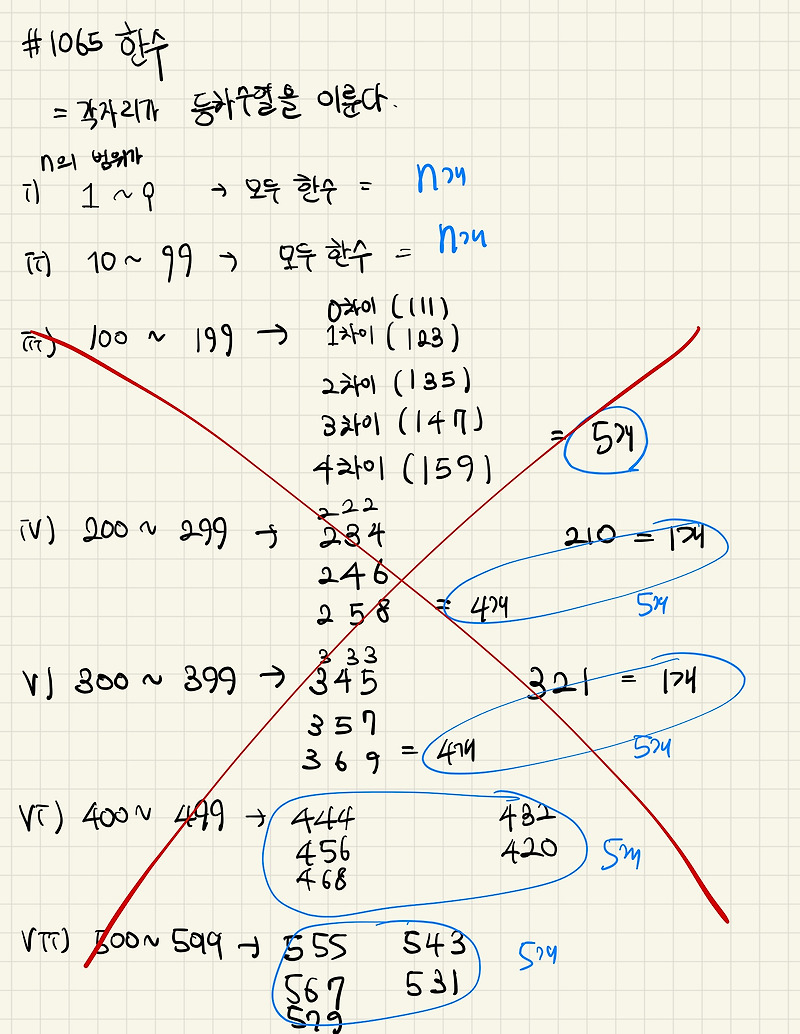 #1065 한수
= 각자리가 등차수열을 이룬다.
n의 범위가
i) 1 ~ 9 → 모두 한수 = n개
ii) 10 ~ 99 → 모두 한수 = n개
0차이 (111)
iii) 100 ~ 199 → 1차이 (123)
2차이 (135)
3차이 (147)
= 5개
4차이 (159)
222
iv) 200 ~ 299 → 234 210 = 1개
246
258 = 4개 5개
333
v) 300 ~ 399 → 345 321 = 1개
357
369 = 4개 5개
vi) 400 ~ 499 → 444 432
456 420 5개
468
vii) 500 ~ 599 → 555 543 5개
567 531
579